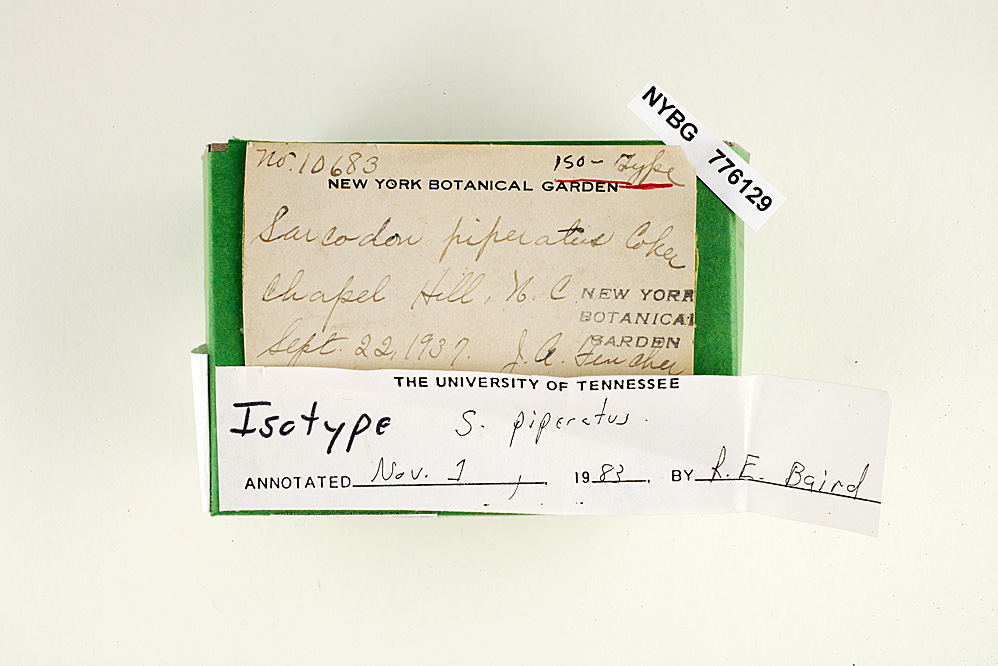 NYBG 776129
No. 10683 ISO-Type
NEW YORK BOTANICAL GARDEN
Sarcodon piperatus Coker
Chapel Hill, N. C.
NEW YORK
BOTANICAL
GARDEN
Sept. 22, 1937. J. A. Fincher
THE UNIVERSITY OF TENNESSEE
Isotype S. piperatus.
ANNOTATED Nov. 1, 1983. BY R. E. Baird